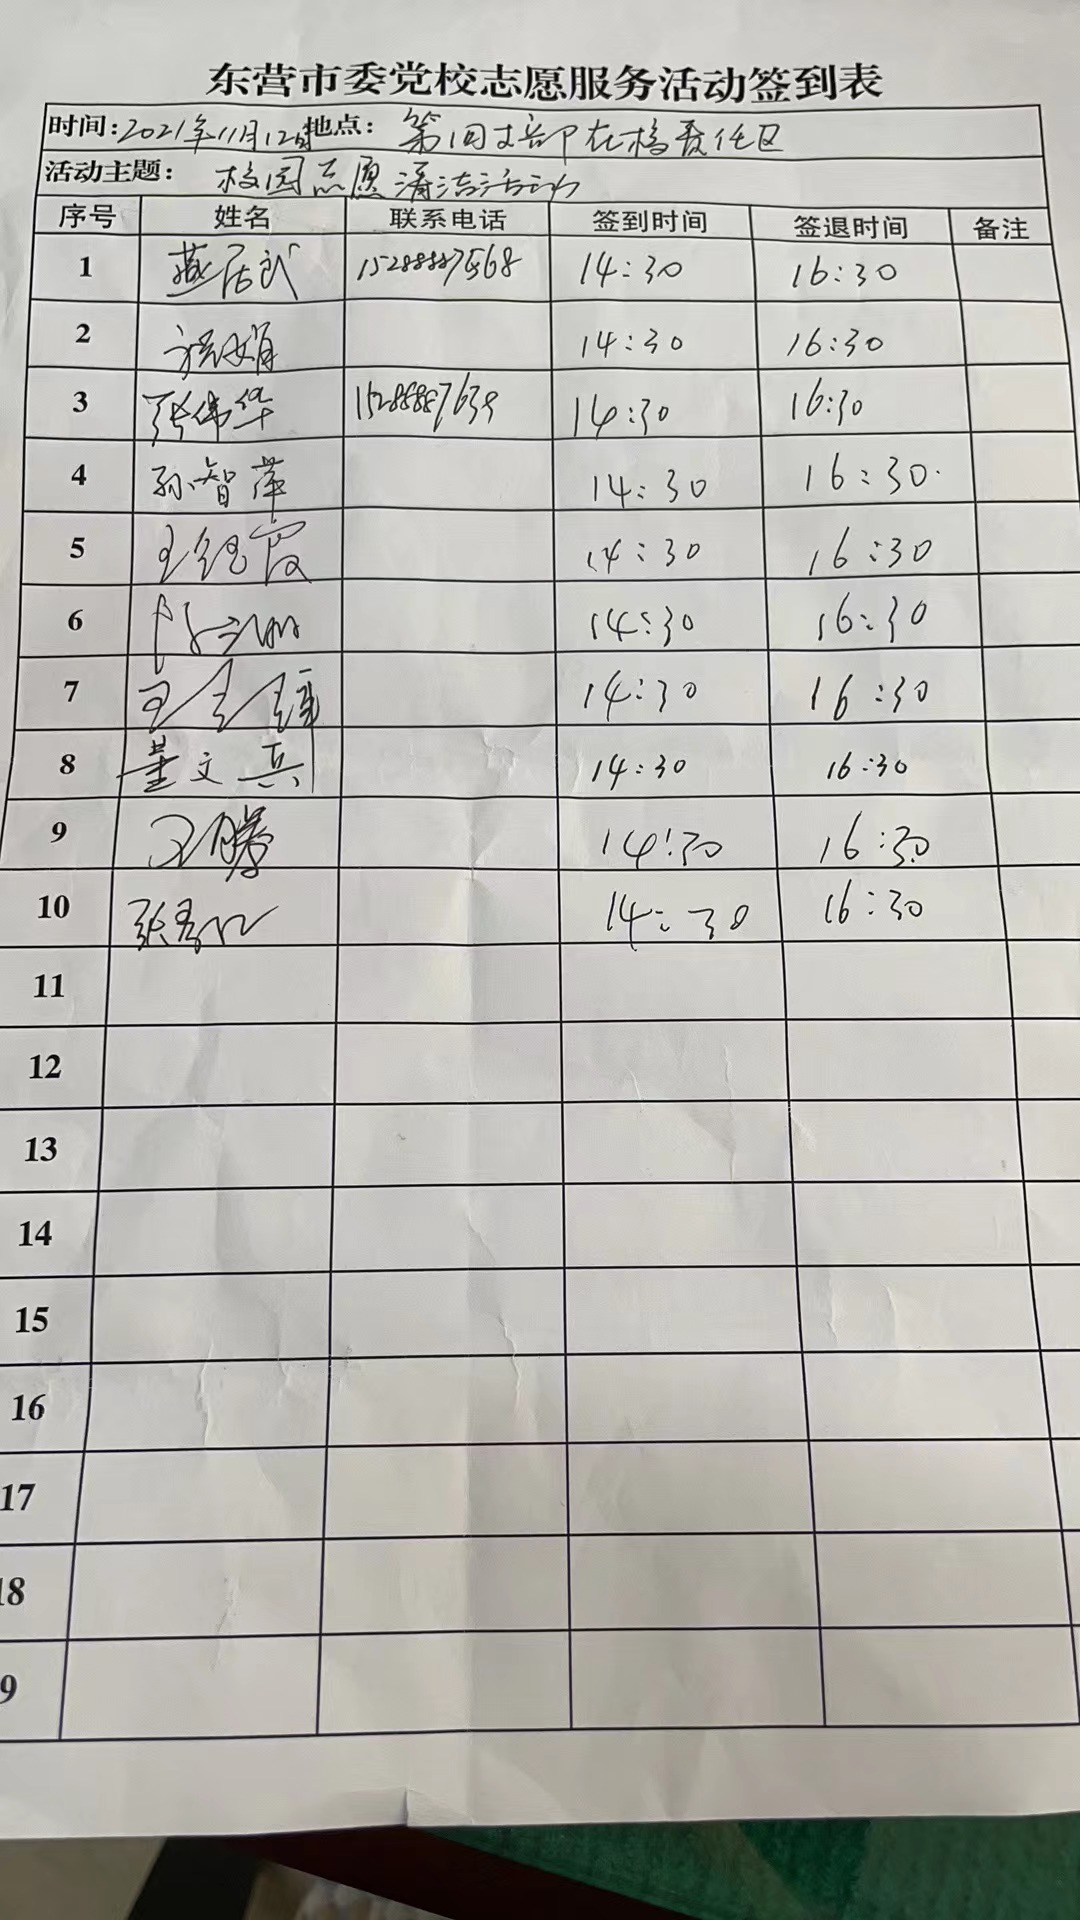 东营市委党校志愿服务活动签到表
时间:2021年11月12日 地点: 第 在校 责任区
活动主题: 校园志愿清洁活动
序号 姓名 联系电话 签到时间 签退时间 备注
1 燕居武 15288887568 14:30 16:30
2 14:30 16:30
3 张伟华 15288887639 14:30 16:30
4 孙智萍 14:30 16:30
5 王红霞 14:30 16:30
6 14:30 16:30
7 王 14:30 16:30
8 董文兵 14:30 16:30
9 王腾 14:30 16:30
10 张 14:30 16:30
11
12
13
14
15
16
17
18
9